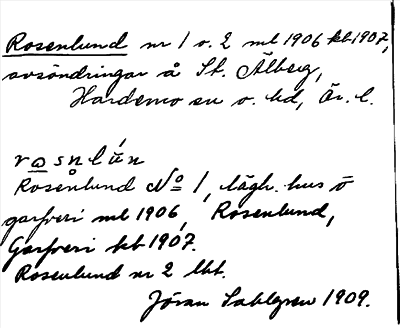 Rosenlund nr 1 o. 2 ml 1906 kb 1907,
avsöndringar å St. Älberg,
Hardemo sn o. hd, Är. l.
rosnlún
Rosenlund No 1, lägh. hus o
garfveri ml 1906, Rosenlund,
Garfveri kb 1907.
Rosenlund nr 2 lht.
Jöran Sahlgren 1909.